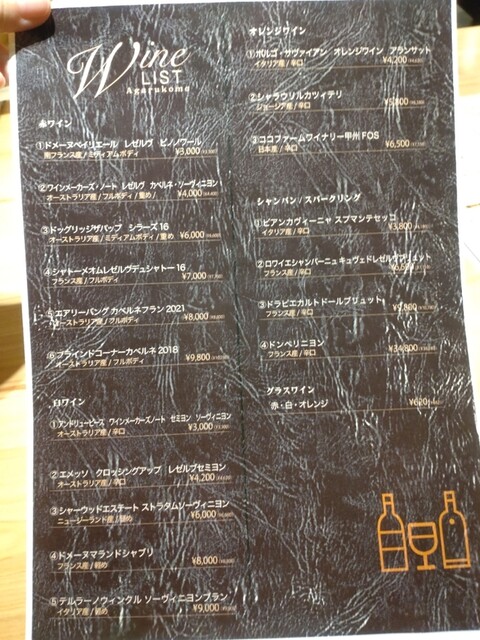 Wine
LIST
Agarukome
赤ワイン
①ドメーヌベイリエール レゼルヴ ピノノワール
南フランス産 / ミディアムボディ ¥3,000
②ワインメーカーズ・ノート レゼルヴ カベルネ・ソーヴィニヨン
オーストラリア産 / フルボディ / 重め ¥4,000
③ドッグリッジザパップ シラーズ 16
オーストラリア産 / ミディアムボディ / 重め ¥6,000
④シャトーメオムレゼルヴデュシャトー 16
フランス産 / フルボディ ¥7,000
⑤エアリーバング カベルネフラン 2021
オーストラリア産 / フルボディ ¥8,000
⑥ブラインドコーナーカベルネ 2018
オーストラリア産 / フルボディ ¥9,800
白ワイン
①アンドリューピース ワインメーカーズノート セミヨン ソーヴィニヨン
オーストラリア産 / 辛口 ¥3,000
②エメッソ クロッシングアップ レゼルブセミヨン
オーストラリア産 / 辛口 ¥4,200
③シャーウッドエステート ストラタムソーヴィニヨン
ニュージーランド産 / 軽め ¥6,000
④ドメーヌマランドシャブリ
フランス産 / 軽め ¥8,000
⑤テルラーノウィンクル ソーヴィニヨンブラン
イタリア産 / 軽め ¥9,000
オレンジワイン
①ボルゴ・サヴァイアン オレンジワイン アランサット
イタリア産 / 辛口 ¥4,200
②シャラウリルカツィテリ
ジョージア産 / 辛口 ¥5,800
③ココファームワイナリー甲州 FOS
日本産 / 辛口 ¥6,500
シャンパン / スパークリング
①ビアンカヴィーニャ スプマンテセッコ
イタリア産 / 辛口 ¥3,800
②ロワイエシャンパーニュ キュヴェドレゼルヴブリュット
フランス産 / 辛口
③ドラピエカルトドールブリュット
フランス産 / 辛口 ¥9,800
④ドンペリニヨン
フランス産 / 辛口 ¥34,800
グラスワイン
赤・白・オレンジ ¥620